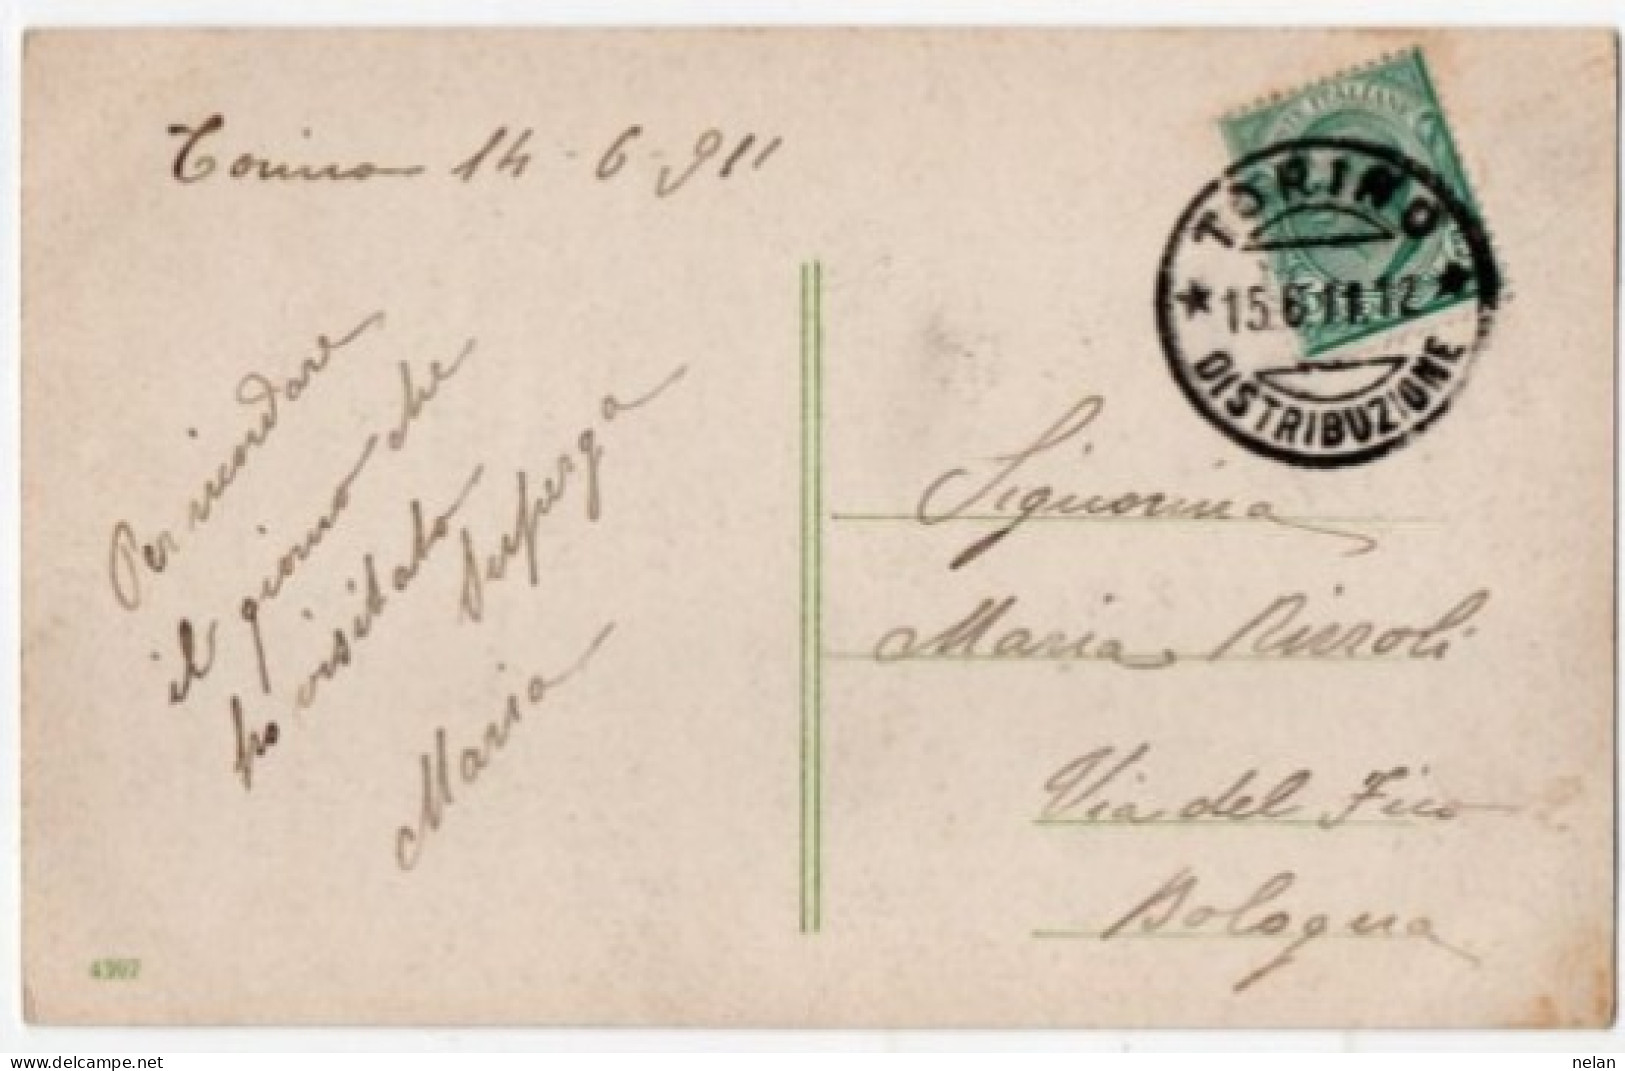 Torino 14 - 6 - 911
Per ricordare
il giorno che
ho visitato
Superga
Maria
4397
ITALIANE
TORINO
15.6 11.12
DISTRIBUZIONE
Signorina
Maria Rizzoli
Via del Fico
Bologna
nelan